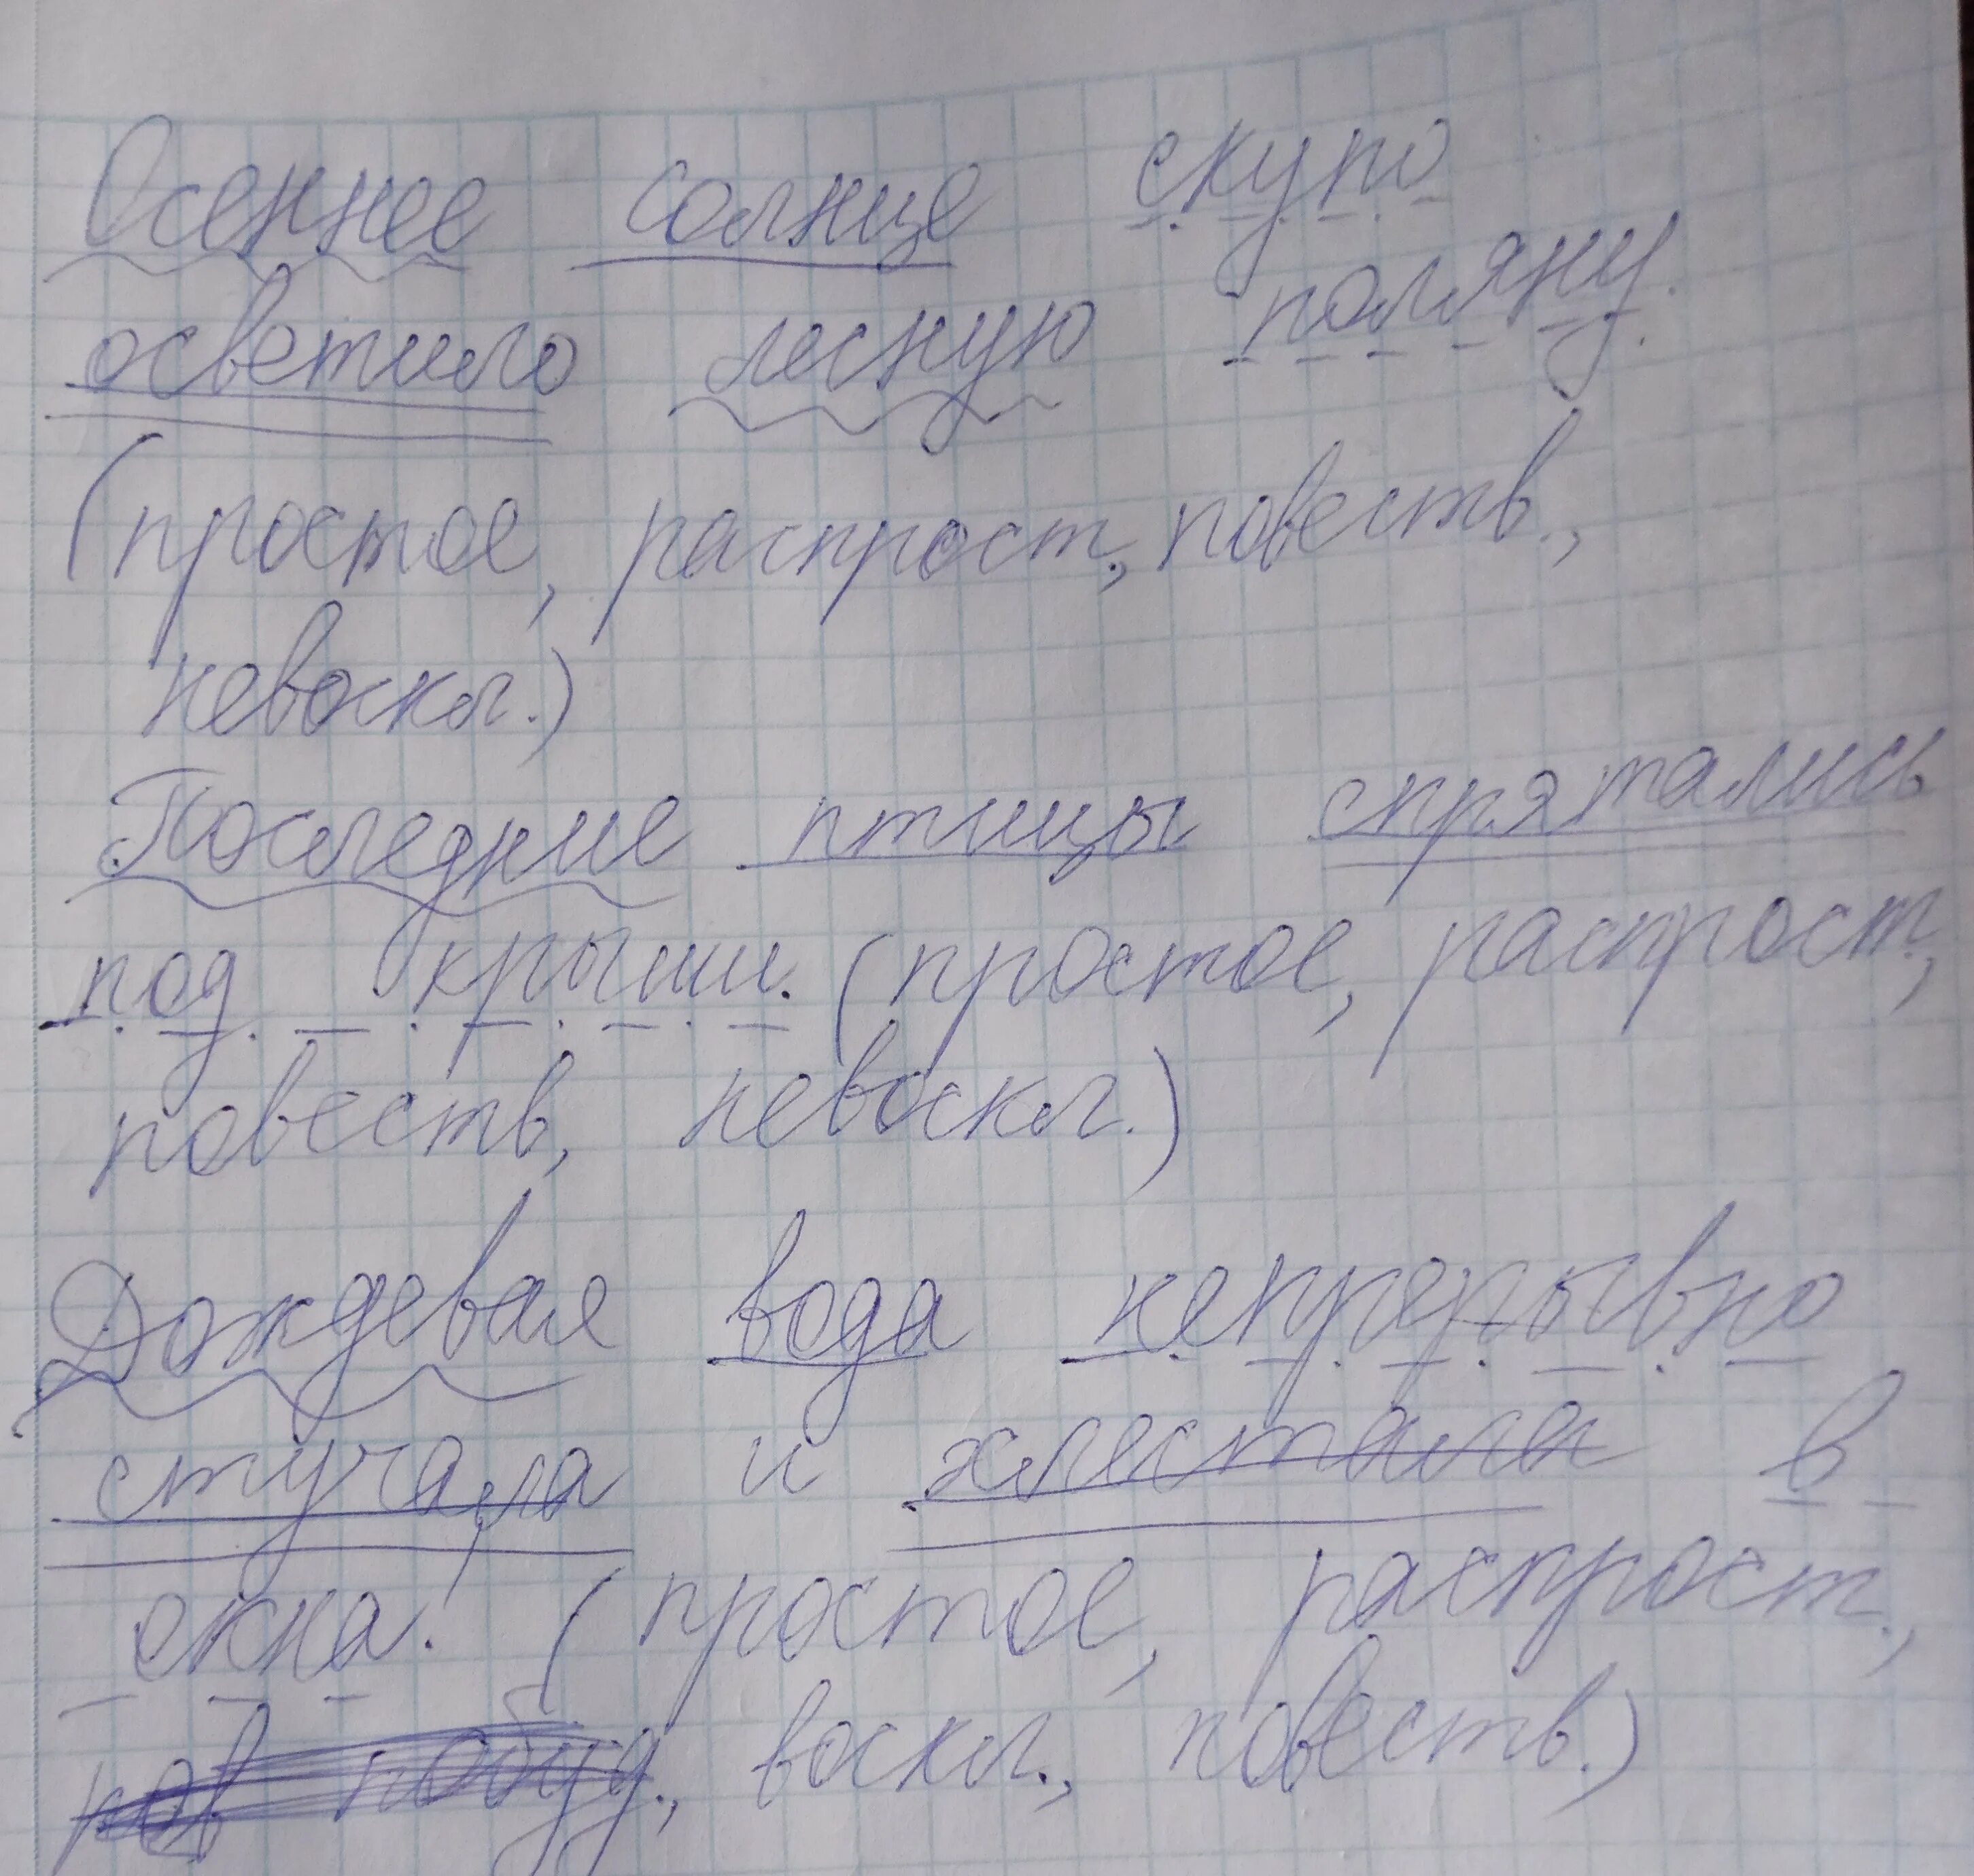 Осеннее солнце скупо
осветило лесную поляну.
(простое, распрост., повеств.,
невоскл.)
Последние птицы спрятались
под крыши. (простое, распрост.,
повеств, невоскл.)
Дождевая вода непрерывно
стучала и хлестала в
окна! (простое, распрост.,
пов побуд., воскл., повеств.)